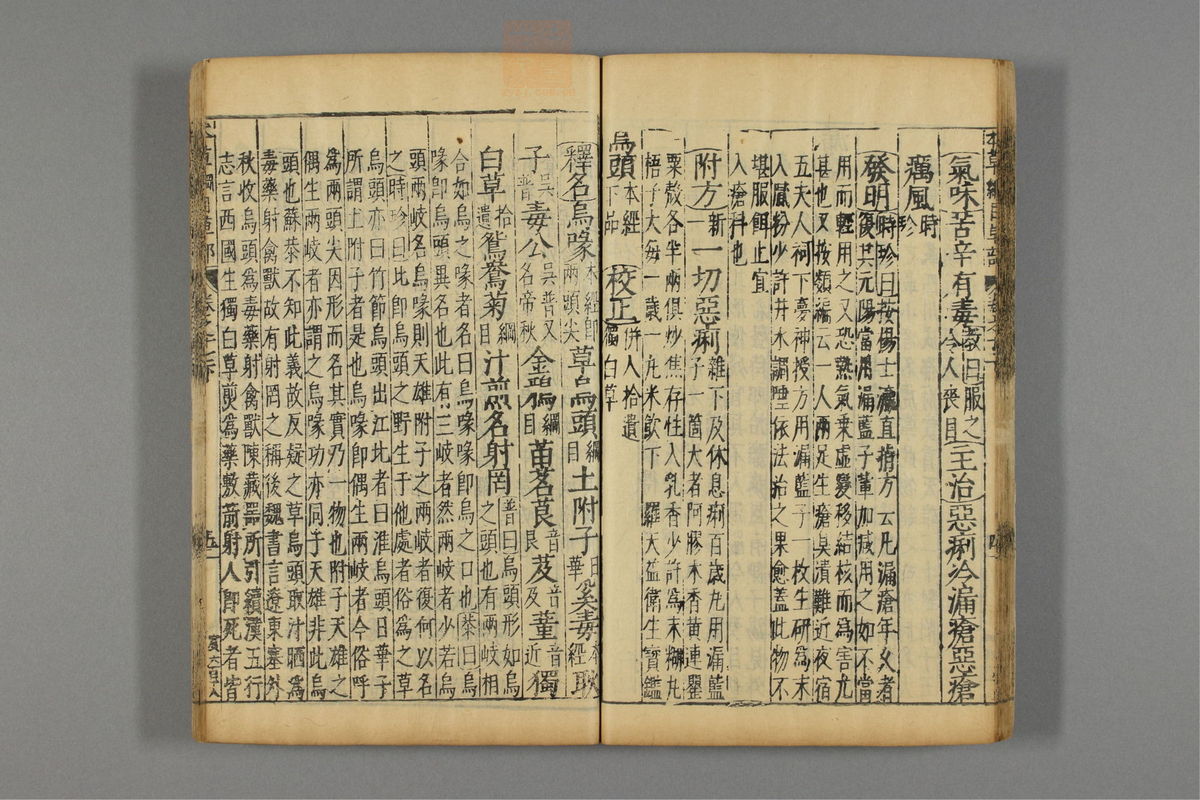 氣味苦辛有毒斅曰服之令人喪目主治惡痢冷漏瘡惡瘡
癘風時珍
發明時珍曰按楊士瀛直指方云凡漏瘡年久者
復其元陽當用漏藍子軰加減用之如不當
用而輕用之又恐熱氣乗虚變移結核而為害尤
甚也又按類編云一人兩足生瘡臭潰難近夜宿
五夫人祠下夢神授方用漏藍子一枚生研為末
入膩粉少許井水調𡍼依法治之果愈蓋此物不
堪服餌止宜
入瘡科也
附方新一一切惡痢雜下及休息痢百歳丸用漏藍
子一箇大者阿膠木香黄連罌
粟殻各半兩俱炒焦存性入乳香少許為末糊丸
梧子大每一歳一丸米飲下 羅天益衛生寳鑑
烏頭本經下品 校正併入拾遺獨白草
釋名烏喙本經即兩頭尖草烏頭綱目土附子日華奚毒本經耿
子吳普毒公吳普又名帝秋金鴉綱目苗名莨音艮芨音及菫音近獨
白草拾遺鴛鴦菊綱目汁煎名射罔普曰烏頭形如烏之頭也有兩岐相
合如烏之喙者名曰烏喙喙即烏之口也㳟曰烏
喙即烏頭異名也此有三岐者然兩岐者少若烏
頭兩岐名烏喙則天雄附子之兩岐者復何以名
之時珍曰此即烏頭之野生于他處者俗為之草
烏頭亦曰竹節烏頭出江北者曰淮烏頭日華子
所謂土附子者是也烏喙即偶生兩岐者今俗呼
為兩頭尖因形而名其實乃一物也附子天雄之
偶生兩岐者亦謂之烏喙功亦同于天雄非此烏
頭也蘇㳟不知此義故反疑之草烏頭取汁晒為
毒藥射禽獸故有射罔之稱後魏書言遼東塞外
秋收烏頭為毒藥射禽獸陳藏噐所引續漢五行
志言西國生獨白草煎為藥敷箭射人即死者皆